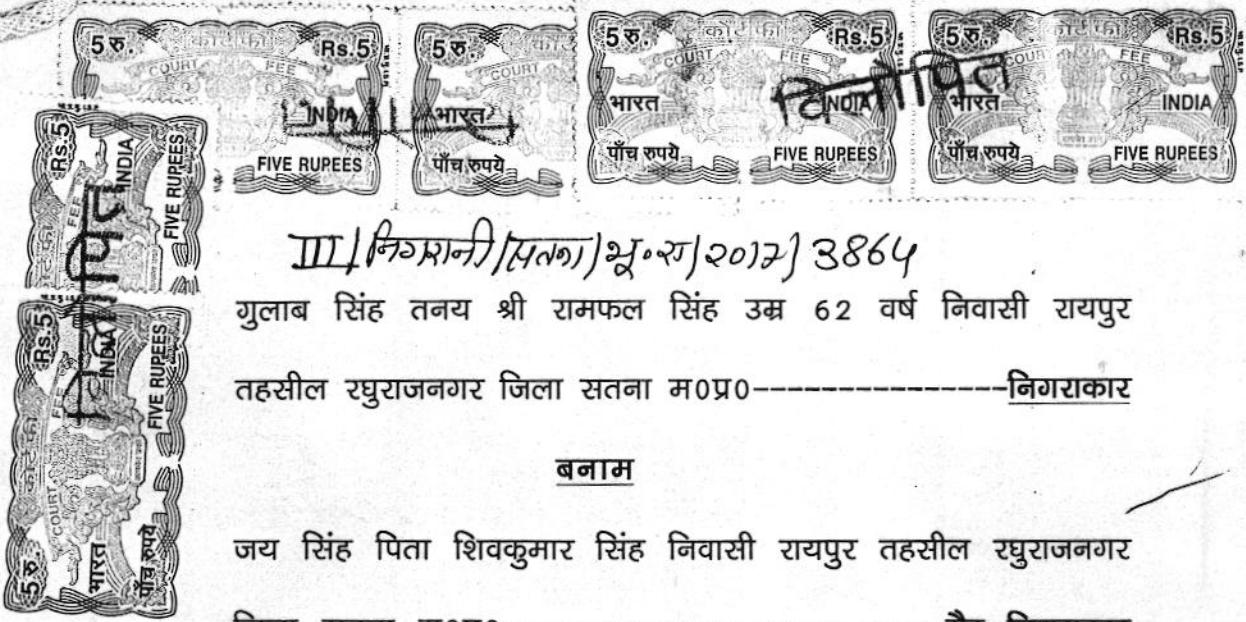 5 रु. कोर्ट फी Rs.5
COURT FEE
भारत INDIA
FIVE RUPEES
5 रु.
COURT
भारत
पाँच रुपये
5 रु. कोर्ट फी Rs.5
COURT FEE
भारत INDIA
पाँच रुपये FIVE RUPEES
5 रु. कोर्ट फी Rs.5
COURT FEE
भारत INDIA
पाँच रुपये FIVE RUPEES
Rs.5
FEE
INDIA
FIVE RUPEES
5 रु. कोर्ट फी Rs.5
COURT FEE
भारत INDIA
पाँच रुपये FIVE RUPEES
III/निगरानी/सतना/भू.रा/2017/3864
गुलाब सिंह तनय श्री रामफल सिंह उम्र 62 वर्ष निवासी रायपुर
तहसील रघुराजनगर जिला सतना म0प्र0---------------निगराकार
बनाम
जय सिंह पिता शिवकुमार सिंह निवासी रायपुर तहसील रघुराजनगर